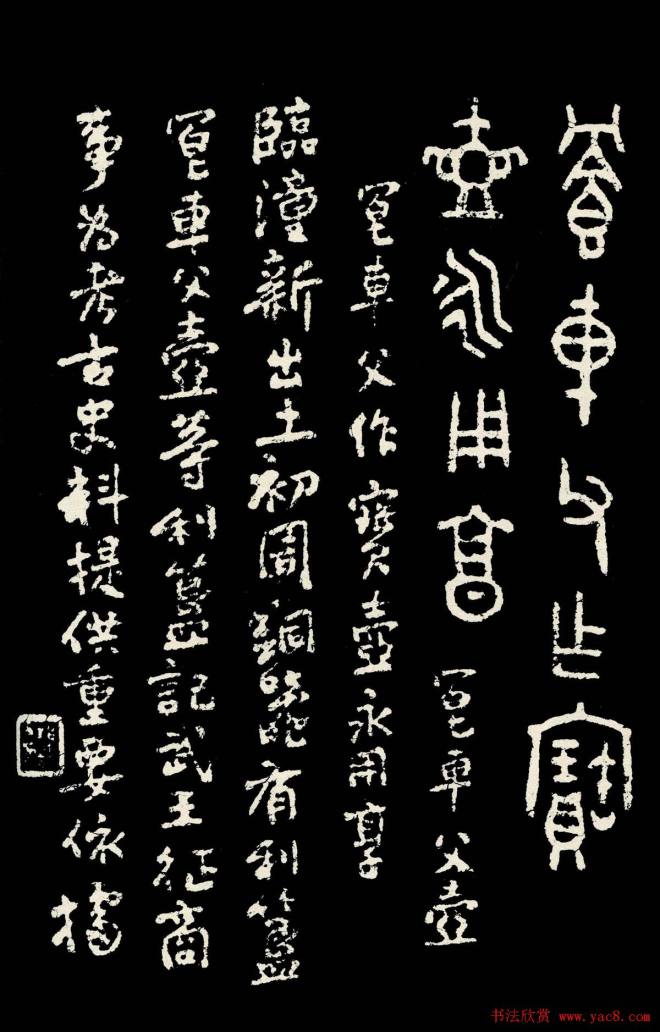 車父乍寶
壺永用享
車父壺
車父作寶壺永用享
臨潼新出土初周銅器有利簋
車父壺等利簋記武王征商
事為考古史料提供重要依據
书法欣赏 www.yac8.com